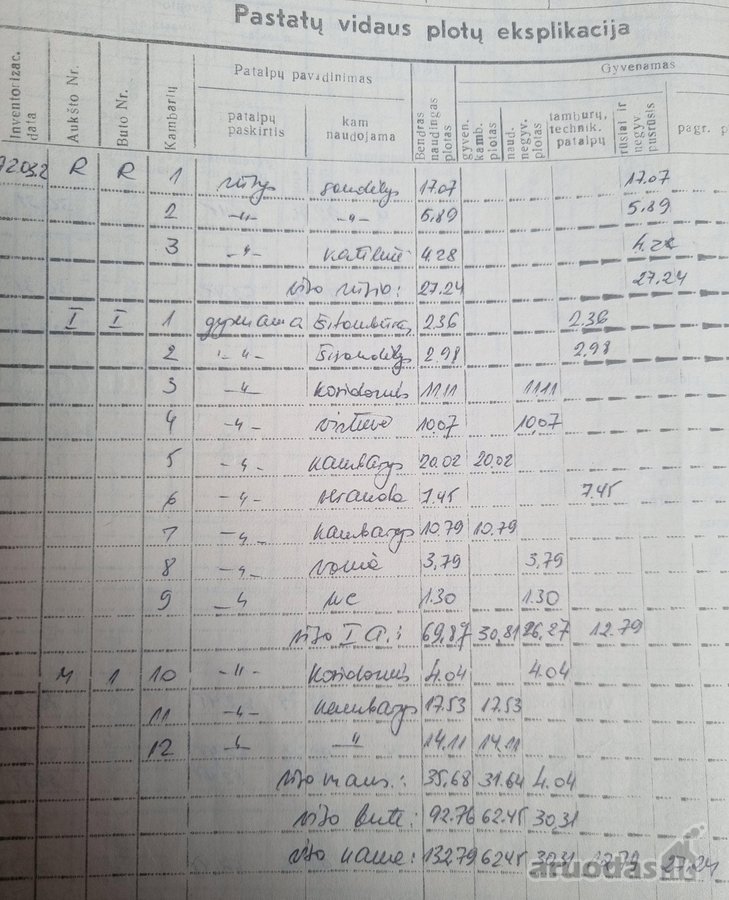 Pastatų vidaus plotų eksplikacija
Inventorizac. data
Aukšto Nr.
Buto Nr.
Kambarių
Patalpų pavadinimas
patalpų paskirtis
kam naudojama
Bendras naudingas plotas
Gyvenamas
gyven. kamb. plotas
naud. negyv. plotas
tamburų, technik. patalpų
rūsiai ir negyv pusrūsis
pagr. p
R R 1 rūsys sandėlys 17.07 17.07
2 -"- -"- 5.89 5.89
3 -"- katilinė 4.28 4.28
viso rūsio: 27.24 27.24
I I 1 gyvenama 2.36 2.36
2 -"- 2.98 2.98
3 -"- koridorius 11.11 11.11
4 -"- virtuvė 10.07 10.07
5 -"- kambarys 20.02 20.02
6 -"- veranda 7.45 7.45
7 -"- kambarys 10.79 10.79
8 -"- vonia 3.79 3.79
9 -"- wc 1.30 1.30
viso I a.: 69.87 30.81 26.27 12.79
M 1 10 -"- koridorius 4.04 4.04
11 -"- kambarys 17.53 17.53
12 -"- -"- 14.11 14.11
viso mans.: 35.68 31.64 4.04
viso bute: 92.76 62.45 30.31
viso name: 132.79 62.45 30.31 12.79 27.24
aruodas.lt